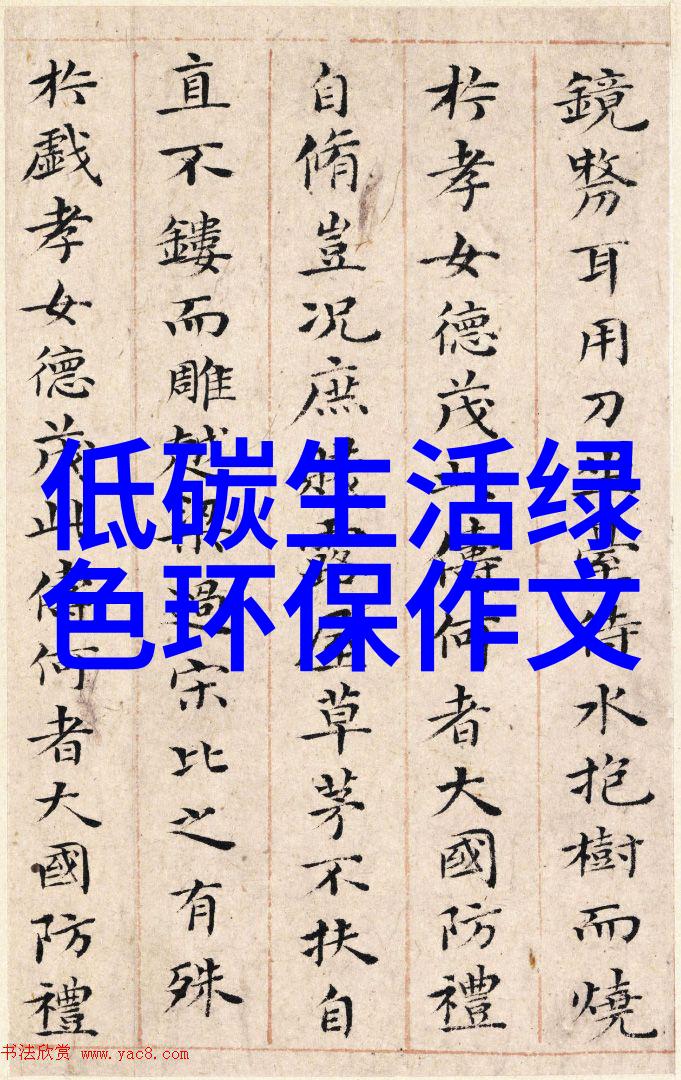 鏡剺耳用刀坐待水抱樹而燒
於孝女德茂此儔何者大國防禮
自脩豈況庶賤露屋草茅不扶自
直不鏤而雕越梁過宋比之有殊
於戲孝女德茂此儔何者大國防禮
低碳生活绿
色环保作文
书法欣赏 www.yac8.com